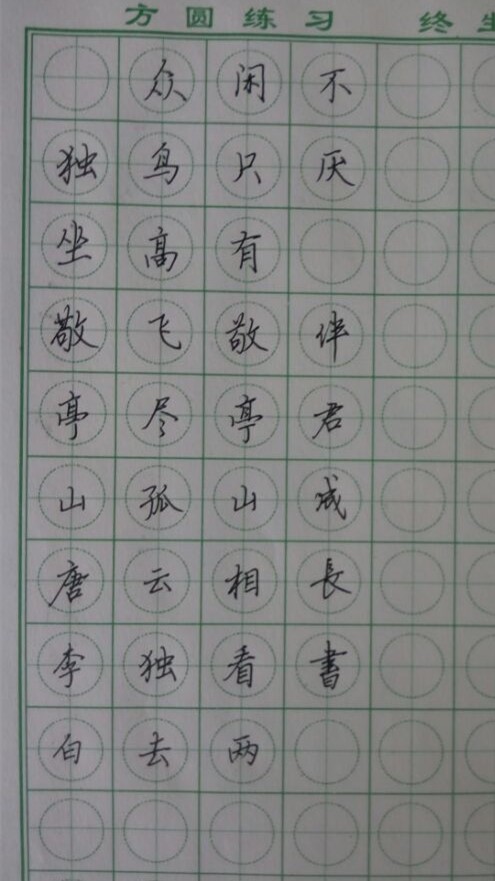 方圆练习 终
独坐敬亭山唐李白
众鸟高飞尽孤云独去
闲只有敬亭山相看两
不厌 伴君成長書